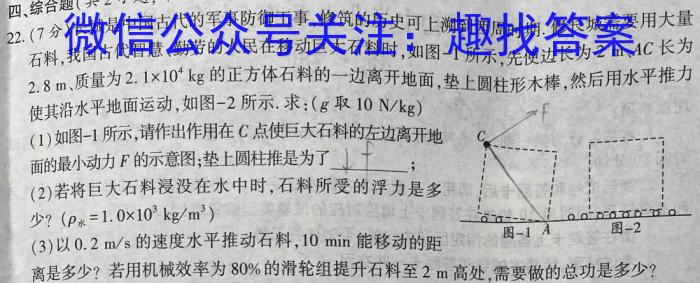 四、综合题(共2小题,
22.(7分 是中国古代的军事防御工事,修筑的历史可上溯到 周时期. 要用大量
微信公众号关注:趣找答案
石料,我国古代 勤劳的 民在移动巨大石料时,如图-1所示,先使边长为2 m、AC长为
2.8 m、质量为2.1×10⁴ kg的正方体石料的一边离开地面,垫上圆柱形木棒,然后用水平推力
使其沿水平地面运动,如图-2所示.求:(g取10 N/kg)
(1)如图-1所示,请作出作用在C点使巨大石料的左边离开地
面的最小动力F的示意图;垫上圆柱推是为了 ;
(2)若将巨大石料浸没在水中时,石料所受的浮力是多
少?(ρ水=1.0×10³ kg/m³)
(3)以0.2 m/s的速度水平推动石料,10 min能移动的距
离是多少?若用机械效率为80%的滑轮组提升石料至2 m高处,需要做的总功是多少?
C
F
A
图-1
图-2